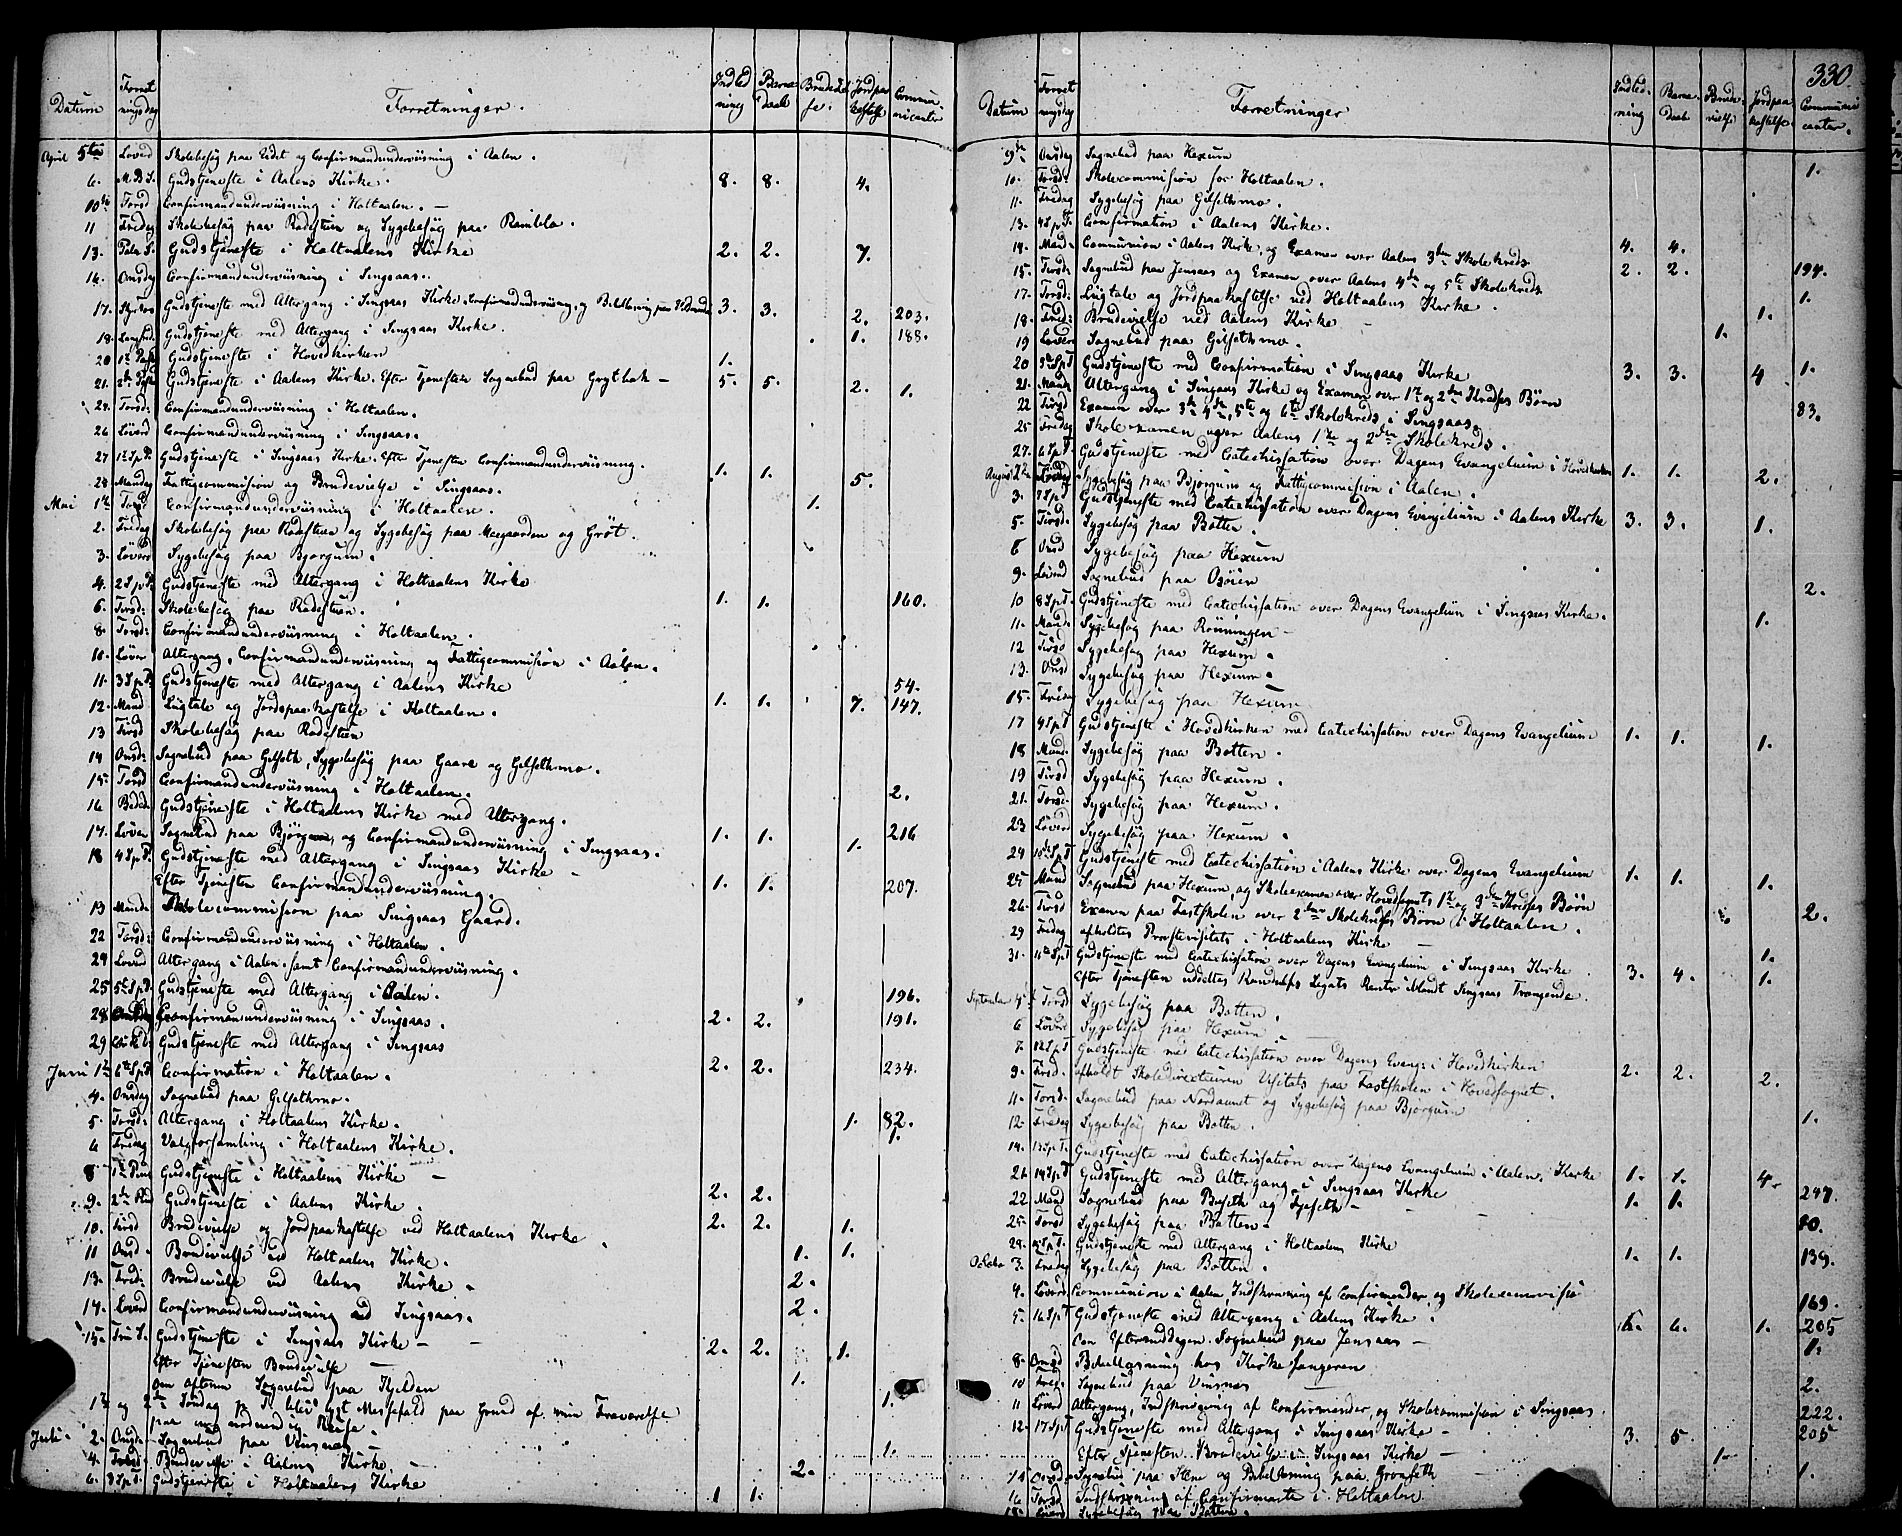 330.
Datum Forretningsdag Forretninger. Indledning Barnedaab Brudevielse: Jordpaakastelse Communicanter
April 5te Løverd Skolebesøg paa Eidet og Confirmandunderviisning i Aalen.
6. M.B.S. Gudstjeneste i Aalens Kirke. 8. 8. 4.
10de Torsd Confirmandunderviisning i Holtaalen. —
11 Fredag Skolebesøg paa Rodestuen og Sygebesøg paa Ramblo.
13. Palm S. Gudstjeneste i Holtaalens Kirke 2. 2. 7.
16. Onsdag Confirmandunderviisning i Singsaas.
17. Skjærtors Gudstjeneste med Altergang i Singsaas Kirke, Confirmandunderviisning, og Bibellæsning paa 3. 3. 2. 203.
18. Langfred. Gudstjeneste med Altergang i Singsaas Kirke. 1. 188.
20 1ste Paask Gudstjeneste i Hovedkirken 1.
21. 2den Paask Gudstjeneste i Aalens Kirke. Efter Tjenesten Sognebud paa Grytbak — 5. 5. 2. 1.
24. Torsd: Confirmandunderviisning i Holtaalen.
26 Løverd Confirmandunderviisning i Singsaas.
27 1 S.p.P. Gudstjeneste i Singsaas Kirke. Efter Tjenesten Confirmandunderviisning. 1. 1. 5.
28 Mandag Fattigcommission og Brudevielse i Singsaas. 1.
Mai 1ste Torsd Confirmandunderviisning i Holtaalen.
2. Fredag Skolebesøg paa Rodestuen og Sygebesøg paa Moegaarden og Grøt.
3. Løverd Sygebesøg paa Bjørgum.
4. 2 S.p.P. Gudstjeneste med Altergang i Holtaalens Kirke 1. 1. 160.
6. Tirsd: Skolebesøg paa Rodestuen.
8. Torsd: Confirmandunderviisning i Holtaalen.
10. Løver Altergang, Confirmandunderviisning og Fattigcommission i Aalen. 54.
11. 3 S.p.P. Gudstjeneste med Altergang i Aalens Kirke 1. 1. 7. 147.
12. Mand Liigtale og Jordpaakastelse i Holtaalen.
13 Tirsd Skolebesøg paa Rodestuen
14 Onsd: Sognebud paa Gilseth, Sygebesøg paa Gaare og Gilsethmo. 2.
15. Torsd Confirmandunderviisning i Holtaalen.
16 Bededa Gudstjeneste i Holtaalens Kirke med Altergang. 1. 1. 1. 216
17. Løver Sognebud paa Bjørgum, og Confirmandunderviisning i Singsaas.
18 4 S.p.P. Gudstjeneste med Altergang i Singsaas Kirke — 1. 1. 207.
Efter Tjenesten Confirmandunderviisning.
19 Manda Skolecommission paa Singsaas Gaard.
22 Torsd: Confirmandunderviisning i Holtaalen.
24 Loverd Altergang i Aalen. samt Confirmandunderviisning. 196.
25 5te S.p.P. Gudstjeneste med Altergang i Aalen. 2. 2. 191.
28 Onsdag Confirmandunderviisning i Singsaas.
29 Gudstjeneste med Altergang i Singsaas 2. 2. 234.
Juni 1ste 6te S.p.P Confirmation i Holtaalen.
4. Onsdag Sognebud paa Gilsethmo. 1.
5. Torsd: Altergang i Holtaalens Kirke. 1. 82.
6 Fredag Valgforsamling i Holtaalens Kirke.
8 1ste Pins Gudstjeneste i Holtaalens Kirke — 2. 2.
9. 2den Pind Gudstjeneste i Aalens Kirke. 2. 2. 1.
10. Tirsd Brudevielse og Jordpaakastelse ved Holtaalens Kirke 1. 1.
11 Onsd. Brudevielse ved Holtaalens Kirke. 2.
13. Fred: Brudevielse ved Aalens Kirke. 2.
14. Loverd Confirmandunderviisning ved Singsaas.
15. Tri S. Gudstjeneste i Singsaas Kirke — 2. 2. 1.
Efter Tjenesten Brudevielse — 1.
Om aftenen Sognebud paa Kjelden 1.
1ste og 2den Søndag p. T. blev lyst Messefald paa Grund af min Fraværelse
paa en nødvendig Reise.
Juli 2. Onsda Sognebud paa Vinsnæs 1.
4. Fredag Brudevielse i Aalens Kirke. 2.
6. 3 S.p.T. Gudstjeneste i Holtaalens Kirke 1 1.
Datum Forretningsdag Forretninger Indledning Barnedaab Brudevielse Jordpaakastelse. Communicanter.
9de Onsdag Sognebud paa Hexum 1.
10. Torsd: Skolecommission for Holtaalen.
11. Fredag Sygebesøg paa Gilsethmo.
13. 4 S.p.T. Confirmation i Aalens Kirke. 4. 4.
14. Mand: Communion i Aalens Kirke, og Examen over Aalens 3die Skolekreds 2. 2. 194.
15. Tirsd: Sognebud paa Jensaas og Examen over Aalens 4de og 5te Skolekreds 1.
17. Torsd: Liigtale og Jordpaakastelse ved Holtaalens Kirke. 1.
18. Fred: Brudevielse ved Aalens Kirke — 1.
19 Løver Sognebud paa Gilsethmo. 1.
20 5te S.p.T Gudstjeneste med Confirmation i Singsaas Kirke 3. 3. 4
21. Manda Altergang i Singsaas Kirke og Examen over 1ste og 2den Kredses Børn 83.
22 Tirsd Examen over 3die 4de, 5te og 6te Skolekreds i Singsaas.
25 Fredag Skoleexamen over Aalens 1ste og 2den Skolekreds.
27. 6 S.p.T. Gudstjeneste med Catechisation over Dagens Evangelium i Hovedkirken 1. 1. 2.
August Sygebesøg paa Bjørgum og Fattigcommission i Aalen.
3. S.p.T Gudstjeneste med Catechisation over Dagens Evangelium i Aalens Kirke 3. 3. 1.
5. Tirsd. Sygebesøg paa Botten.
6 Onsd Sygebesøg paa Hexum
9. Løverd Sognebud paa Osøien 2.
10 8 S.p.T. Gudstjeneste med Catechisation over Dagens Evangelium i Singsaas Kirke. 1.
11. Mand: Sygebesøg paa Rønningen —
12 Tirsd Sygebesøg paa Hexum.
13. Onsd Sygebesøg paa Hexum.
15. Fredag Sygebesøg paa Hexum
17 9 S.p.T Gudstjeneste i Hovedkirken med Catechisation over Dagens Evangelium 1. 1. 1.
18 Mand. Sygebesøg paa Botten.
19 Tirsd Sygebesøg paa Hexum.
21. Torsd. Sygebesøg paa Hexum.
23 Løverd Sygebesøg paa Hexum.
24 10de S.p.T Gudstjeneste med Catechisation i Aalens Kirke over Dagens Evangelium 1. 1. 1.
25 Mand Sognebud paa Hexum, og Skoleexamen over Hovedsognets 1ste og 3die Kredses Børn 2.
26. Tirsd Examen paa Fastskolen over 2den Skolekreds Børn i Holtaalen.
29 Fredag afholdtes Provstevisitats i Holtaalens Kirke — 1.
31. 11te S.p.T Gudstjeneste med Catechisation over Dagens Evangelium i Singsaas Kirke 3. 4. 1.
Efter Tjenesten uddeltes Randulfs Legats Renter blandt Singsaas Trængende.
September 4de Torsd Sygebesøg paa Botten.
6 Løver Sygebesøg paa Hexum
7. 12 S.p.T Gudstjeneste med Catechisation over Dagens Evang: i Hovedkirken 2. 2. 2.
9. Tirsd. afholdt Skoledirecteuren Visitats paa Fastskolen i Hovedsognet.
11. Torsd. Sognebud paa Nordaunet og Sygebesøg paa Bjørgum 1.
12. Fredag Sygebesøg paa Botten.
14. 13 S.p.T. Gudstjeneste med Catechisation over Dagens Evangelium i Aalens Kirke 1. 1. 4.
21 14 S.p.T Gudstjeneste med Altergang i Singsaas Kirke 1. 1. 247.
22 Mand Sognebud paa Buseth og — 10.
25. Torsd Sygebesøg paa Botten.
28. S.p.T. Gudstjeneste med Altergang i Holtaalens Kirke 1. 1. 139.
October 3. Fredag Sygebesøg paa Botten.
4. Løverd Communion i Aalen, Indskrivning af Confirmander, og Skolecommission 169.
5. 16 S.p.T Gudstjeneste med Altergang i Aalens Kirke. 6. 6. 1. 205
Om Eftermiddagen Sognebud paa Jensaas — 1.
8. Onsd Bibellæsning hos Kirkesangeren
10 Fred. Sognebud paa Vinsnæs 2.
11 Løverd Altergang, Indskrivning af Confirmander, og Skolecommission i Singsaas. 222.
12. 17 S.p.T Gudstjeneste med Altergang i Singsaas Kirke — 3. 5. 205
Efter Tjenesten Brudevielse i Singsaas Kirke — 1.
Sognebud paa og Bibellæsning paa Gronseth 1.
16 Torsd Indskrivning af Confirmanter i Holtaalen
18 Løver Sygebesøg paa Botten.